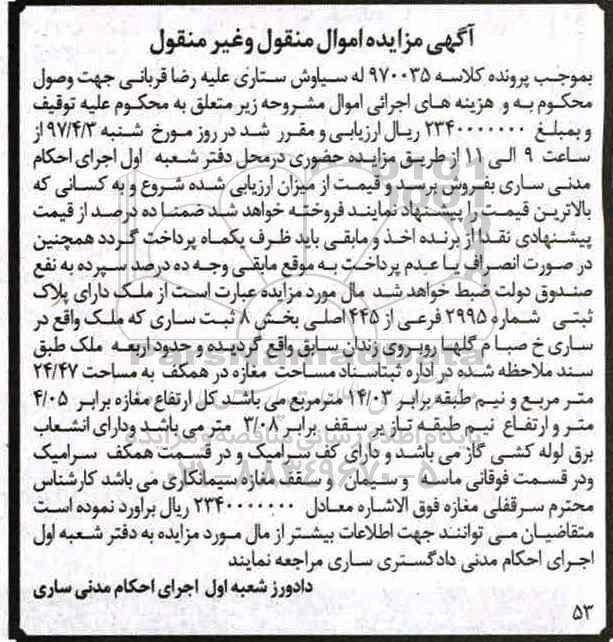 آگهی مزایده اموال منقول و غیر منقول
بموجب پرونده کلاسه ۹۷۰۰۳۵ له سیاوش ستاری علیه رضا قربانی جهت وصول
محکوم به و هزینه های اجرائی اموال مشروحه زیر متعلق به محکوم علیه توقیف
و بمبلغ ۲۳۴۰۰۰۰۰۰۰ ریال ارزیابی و مقرر شد در روز مورخ شنبه ۹۷/۴/۳ از
ساعت ۹ الی ۱۱ از طریق مزایده حضوری درمحل دفتر شعبه اول اجرای احکام
مدنی ساری بفروش برسد و قیمت از میزان ارزیابی شده شروع و به کسانی که
بالاترین قیمت را پیشنهاد نمایند فروخته خواهد شد ضمنا ده درصد از قیمت
پیشنهادی نقدا از برنده اخذ و مابقی باید ظرف یکماه پرداخت گردد همچنین
در صورت انصراف یا عدم پرداخت به موقع مابقی وجه ده درصد سپرده به نفع
صندوق دولت ضبط خواهد شد مال مورد مزایده عبارت است از ملک دارای پلاک
ثبتی شماره ۲۹۹۵ فرعی از ۴۴۵ اصلی بخش ۸ ثبت ساری که ملک واقع در
ساری خ صبا م گلها روبروی زندان سابق واقع گردیده و حدود اربعه ملک طبق
سند ملاحظه شده در اداره ثبتاسناد مساحت مغازه در همکف به مساحت ۲۴/۴۷
متر مربع و نیم طبقه برابر ۱۴/۰۳ مترمربع می باشد کل ارتفاع مغازه برابر ۴/۰۵
متر و ارتفاع نیم طبقه تا زیر سقف برابر ۳/۰۸ متر می باشد ودارای انشعاب
برق لوله کشی گاز می باشد و دارای کف سرامیک و در قسمت همکف سرامیک
ودر قسمت فوقانی ماسه و سیمان و سقف مغازه سیمانکاری می باشد کارشناس
محترم سرقفلی مغازه فوق الاشاره معادل ۲۳۴۰۰۰۰۰۰۰ ریال براورد نموده است
متقاضیان می توانند جهت اطلاعات بیشتر از مال مورد مزایده به دفتر شعبه اول
اجرای احکام مدنی دادگستری ساری مراجعه نمایند
دادورز شعبه اول اجرای احکام مدنی ساری
۵۳